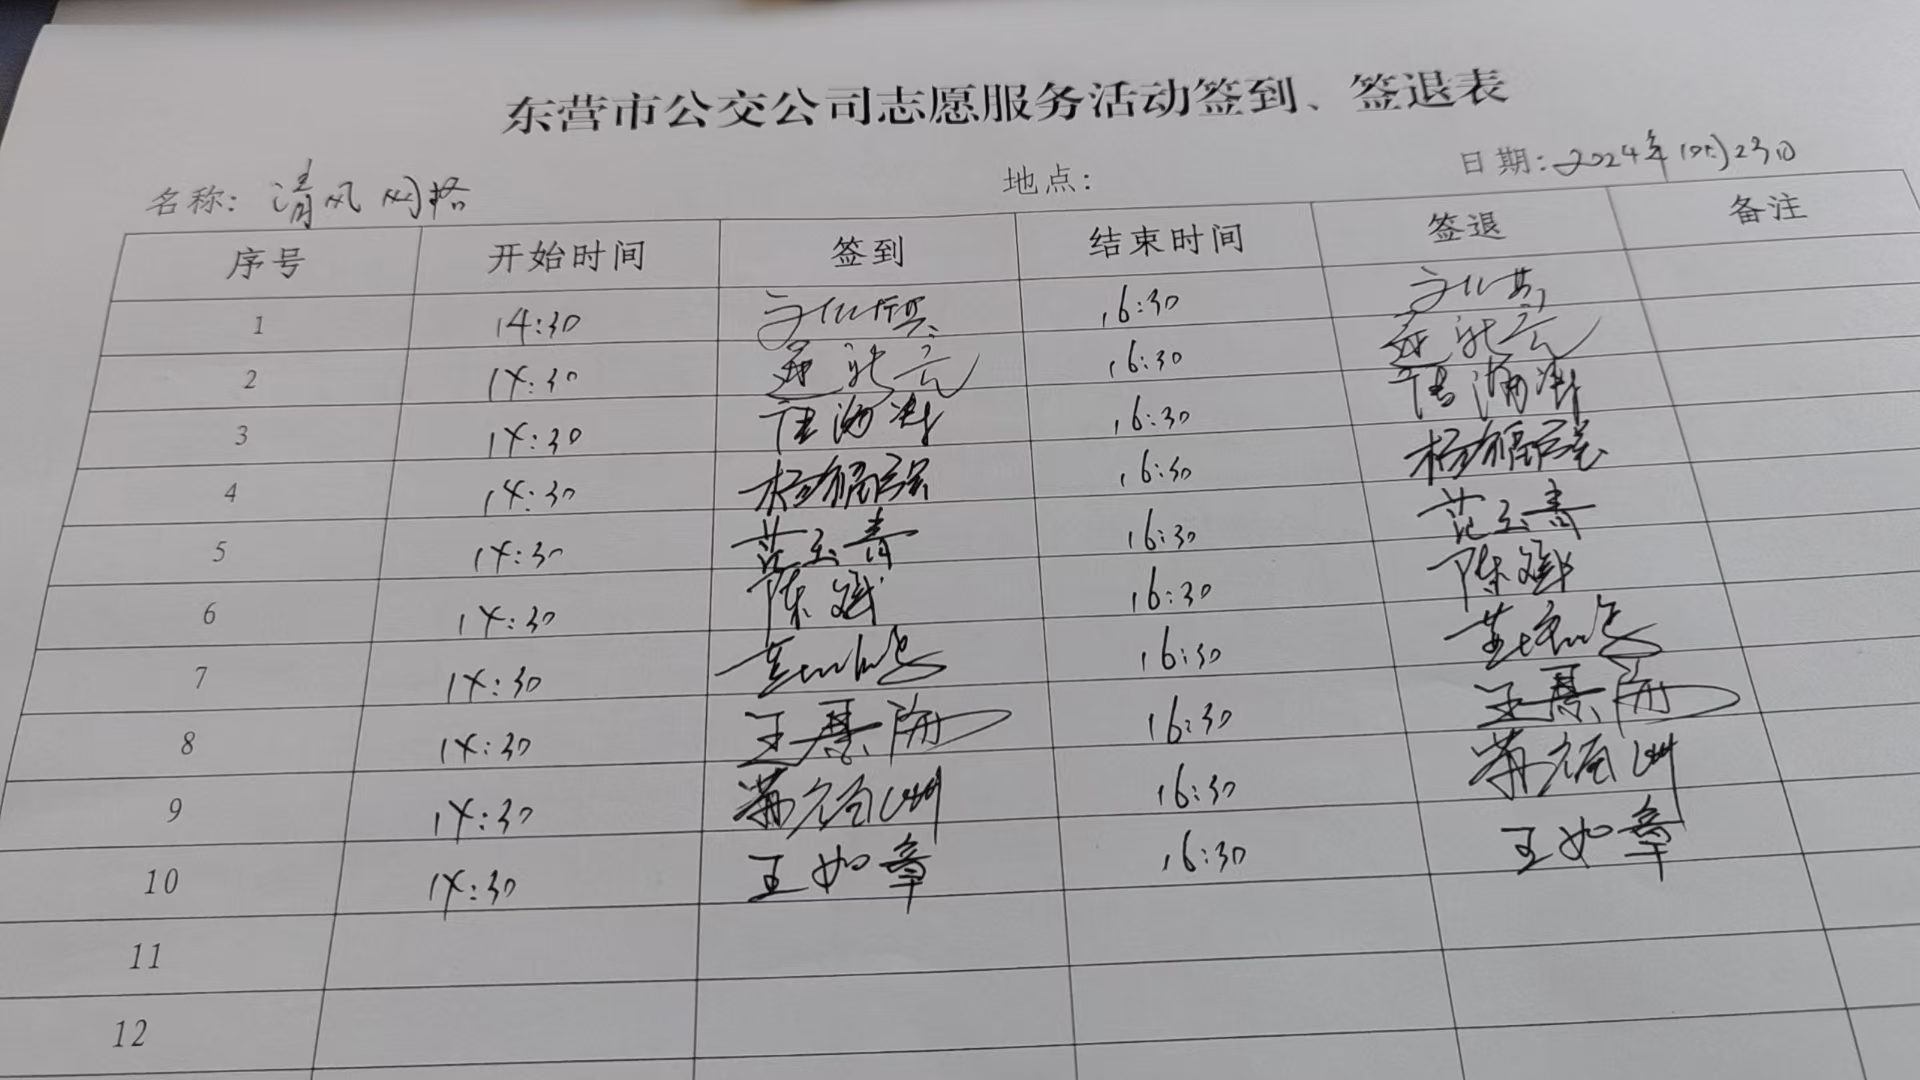 东营市公交公司志愿服务活动签到、签退表
名称: 清风网格 地点: 日期: 2024年10月23日
序号 开始时间 签到 结束时间 签退 备注
1 14:30 16:30
2 14:30 16:30
3 14:30 16:30
4 14:30 杨福强 16:30 杨福强
5 14:30 范玉青 16:30 范玉青
6 14:30 陈斌 16:30 陈斌
7 14:30 16:30
8 14:30 16:30
9 14:30 16:30
10 14:30 王如章 16:30 王如章
11
12